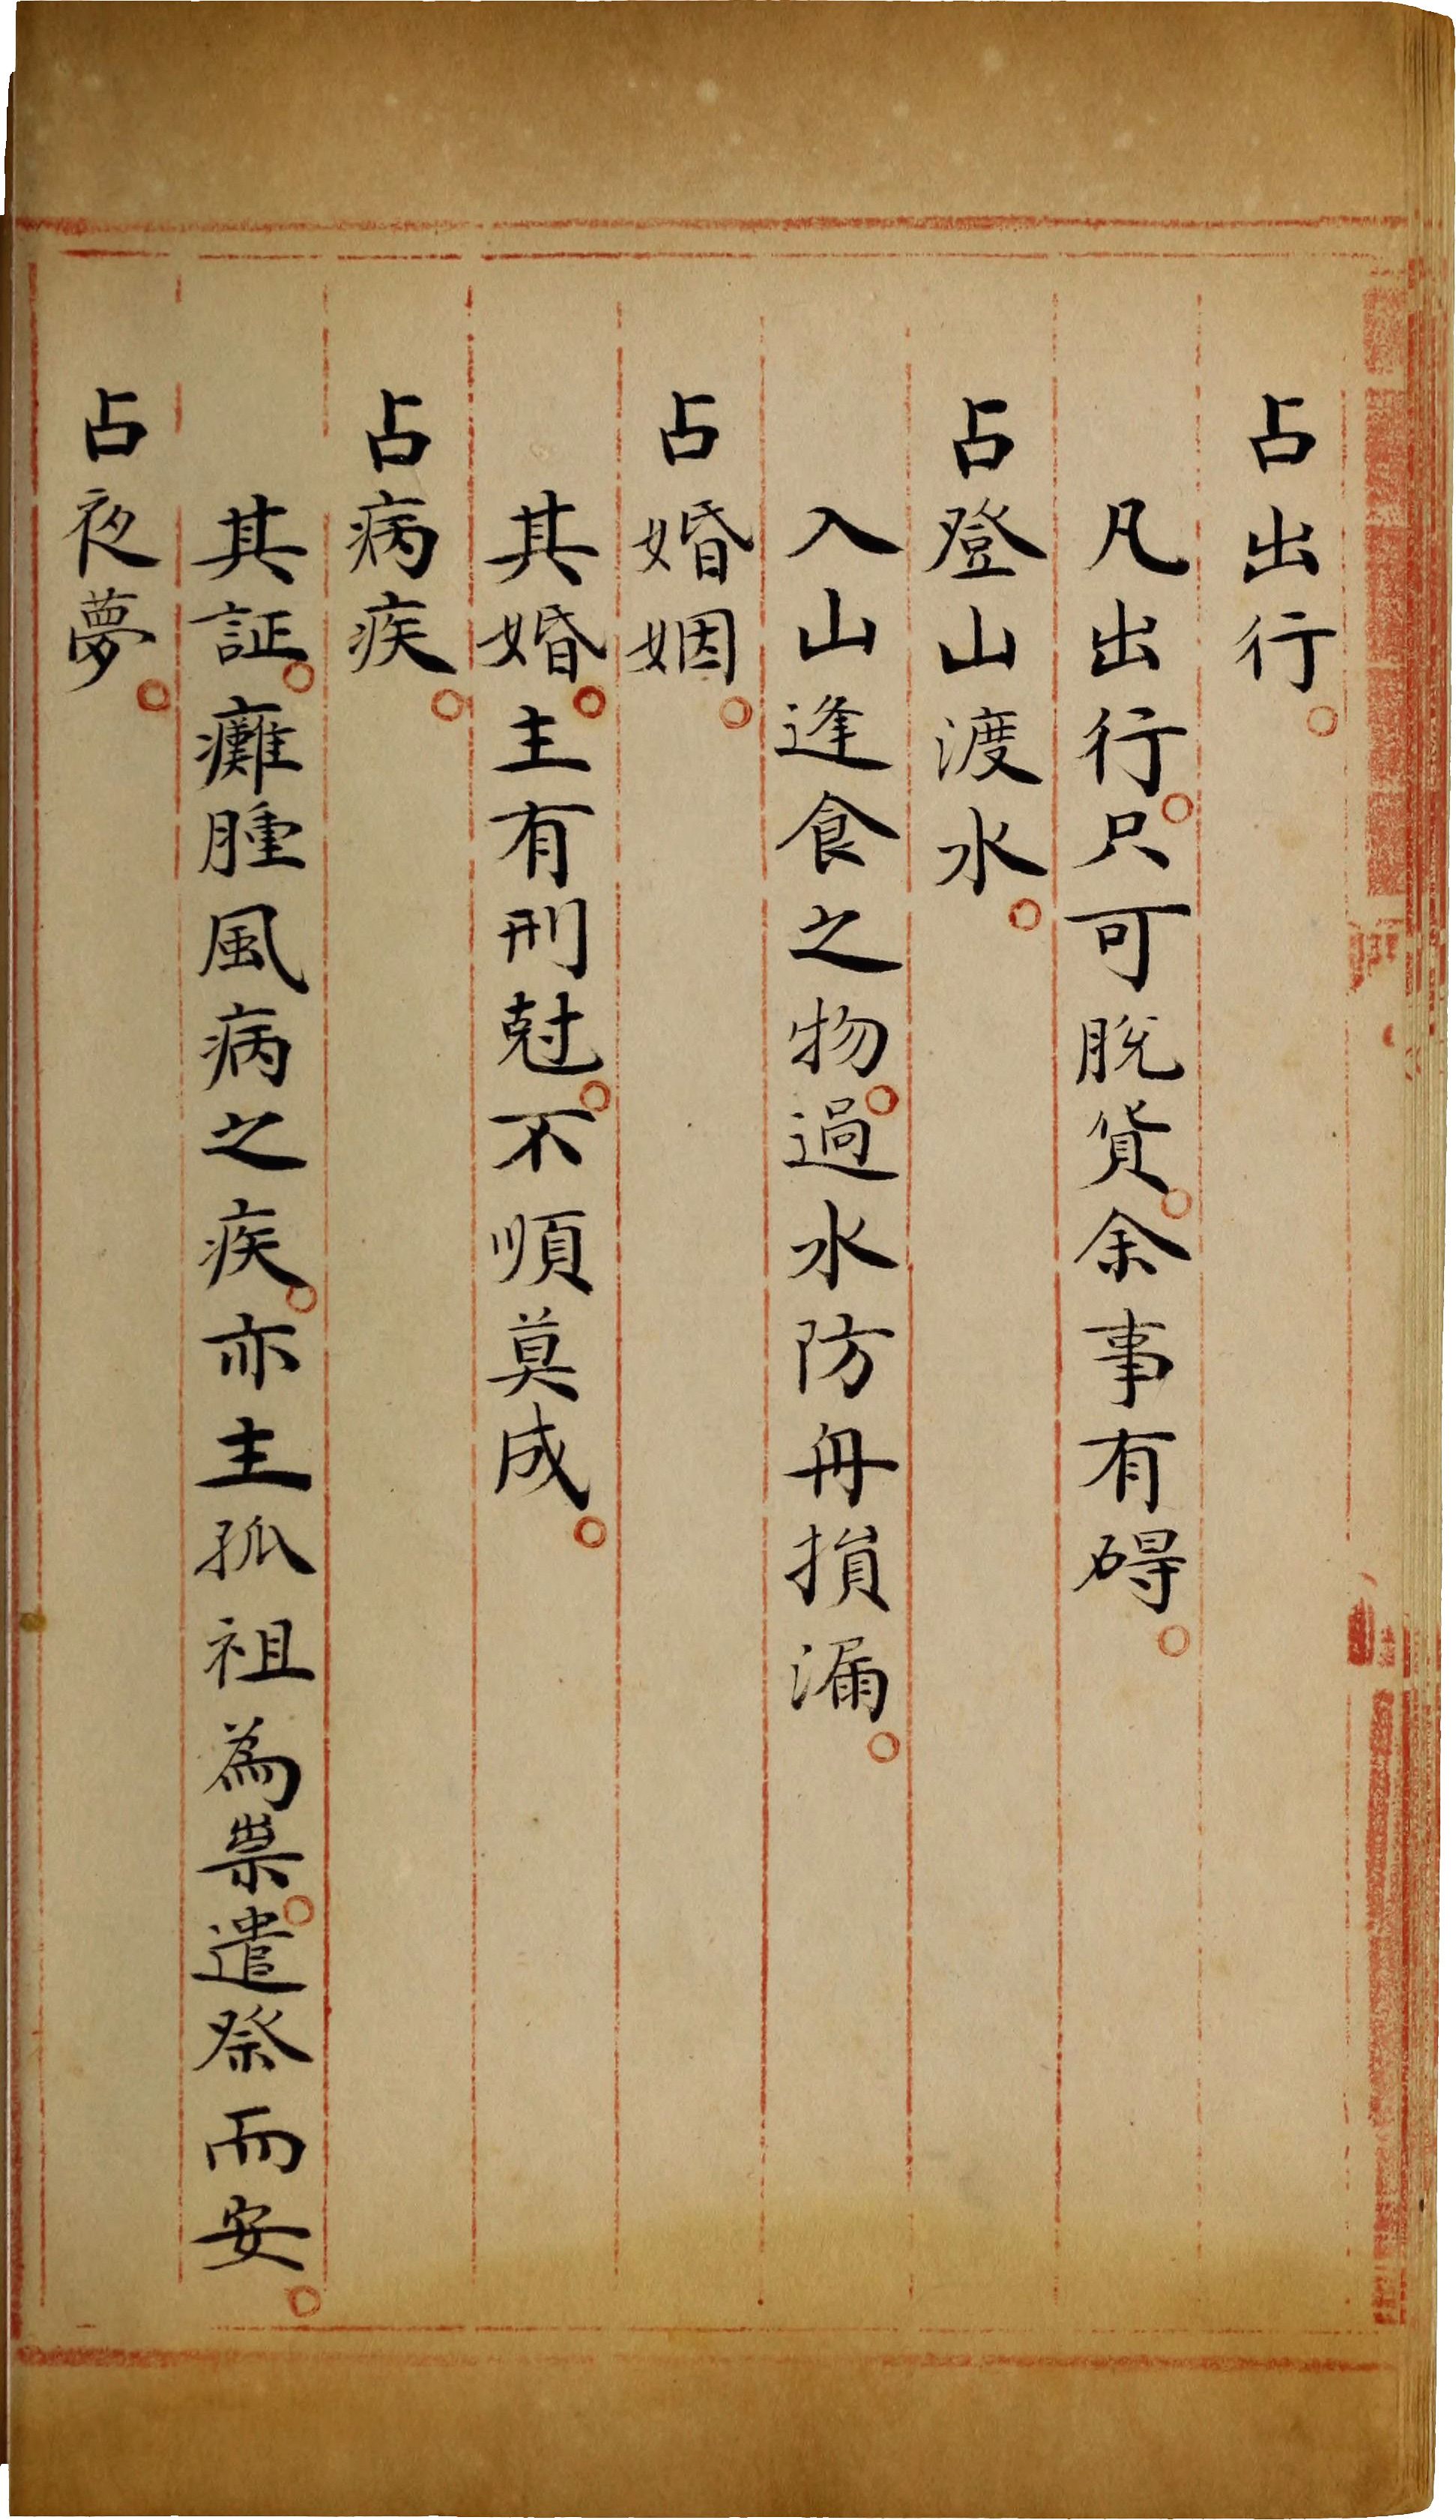 占出行。
凡出行。只可脫貨。余事有碍。
占登山渡水。
入山逢食之物。過水防舟損漏。
占婚姻。
其婚。主有刑尅。不順莫成。
占病疾。
其証。癱腫風病之疾。亦主孤祖為祟。遣祭而安。
占夜夢。